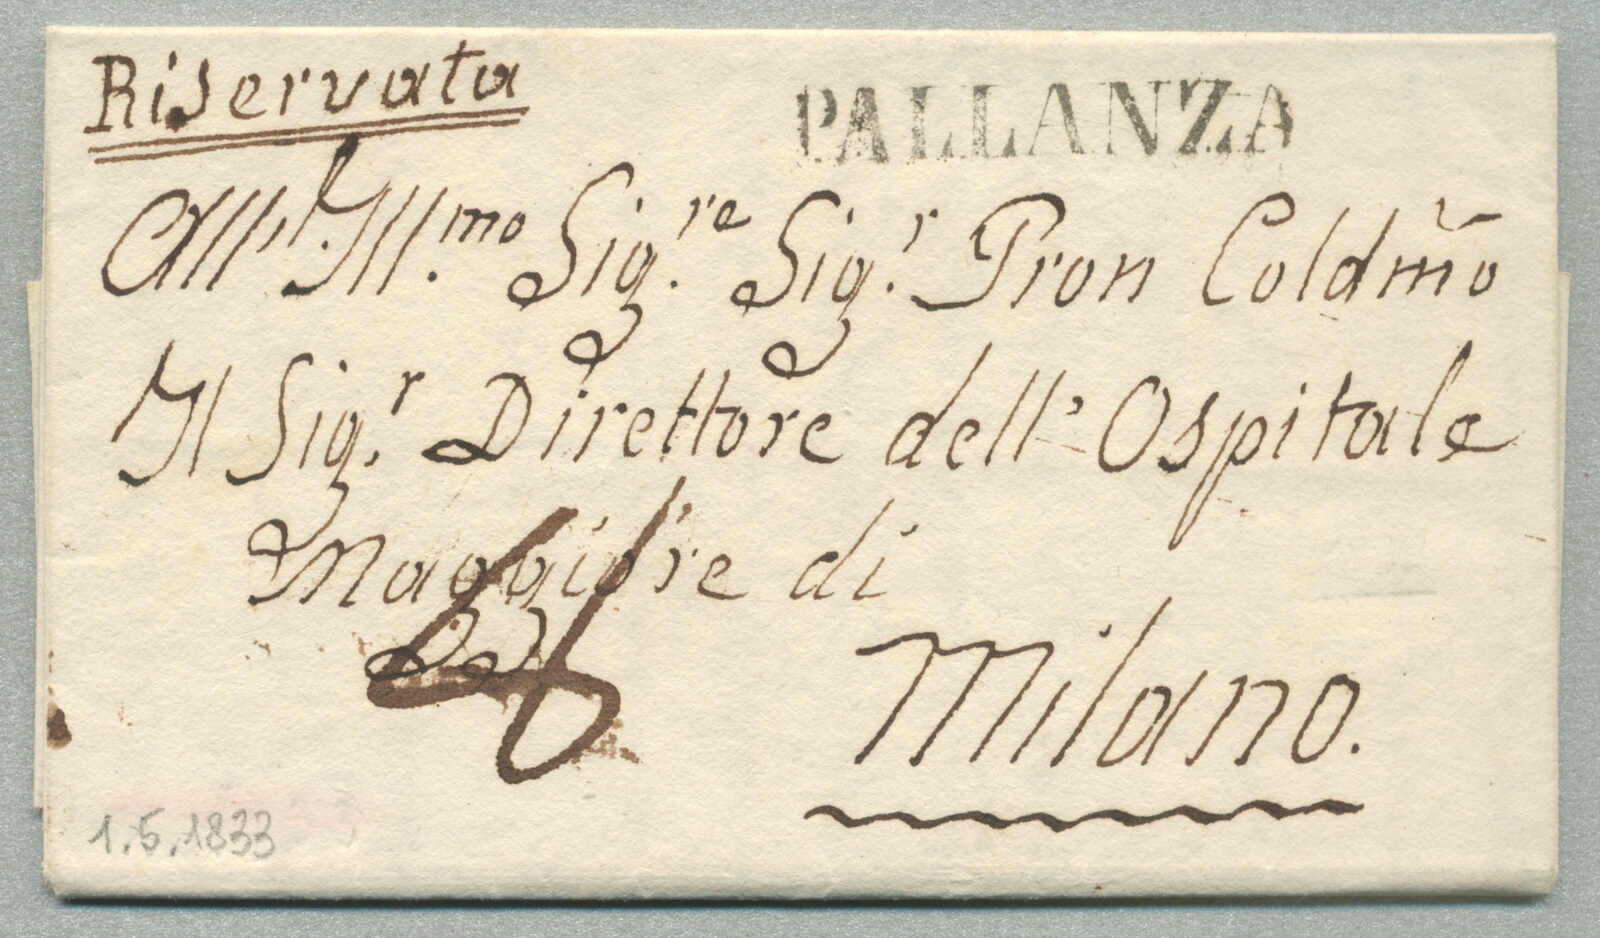 Riservata
PALLANZA
All'. Ill.mo Sig.re Sig.r Pron Coldmo
Il Sig.r Direttore dell'Ospitale
Maggiore di
Milano.
1.5.1833